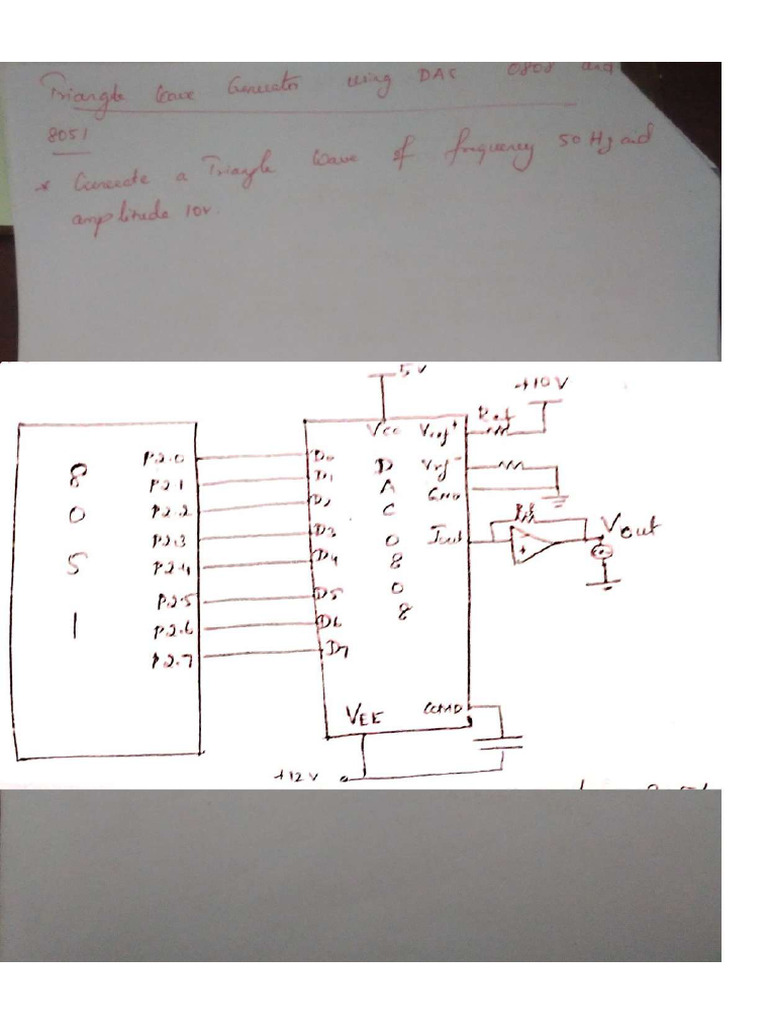 Triangle Wave Generator using DAC 0808 and
8051
* Generate a Triangle Wave of frequency 50 Hz and
amplitude 10v.
5v
+10V
Vcc
Vref+
Ref
8051
P2.0
P2.1
P2.2
P2.3
P2.4
P2.5
P2.6
P2.7
D0
D1
D2
D3
D4
D5
D6
D7
DAC0808
Vref-
GND
Iout
Rf
Vout
+
VEE
COMP
+12V